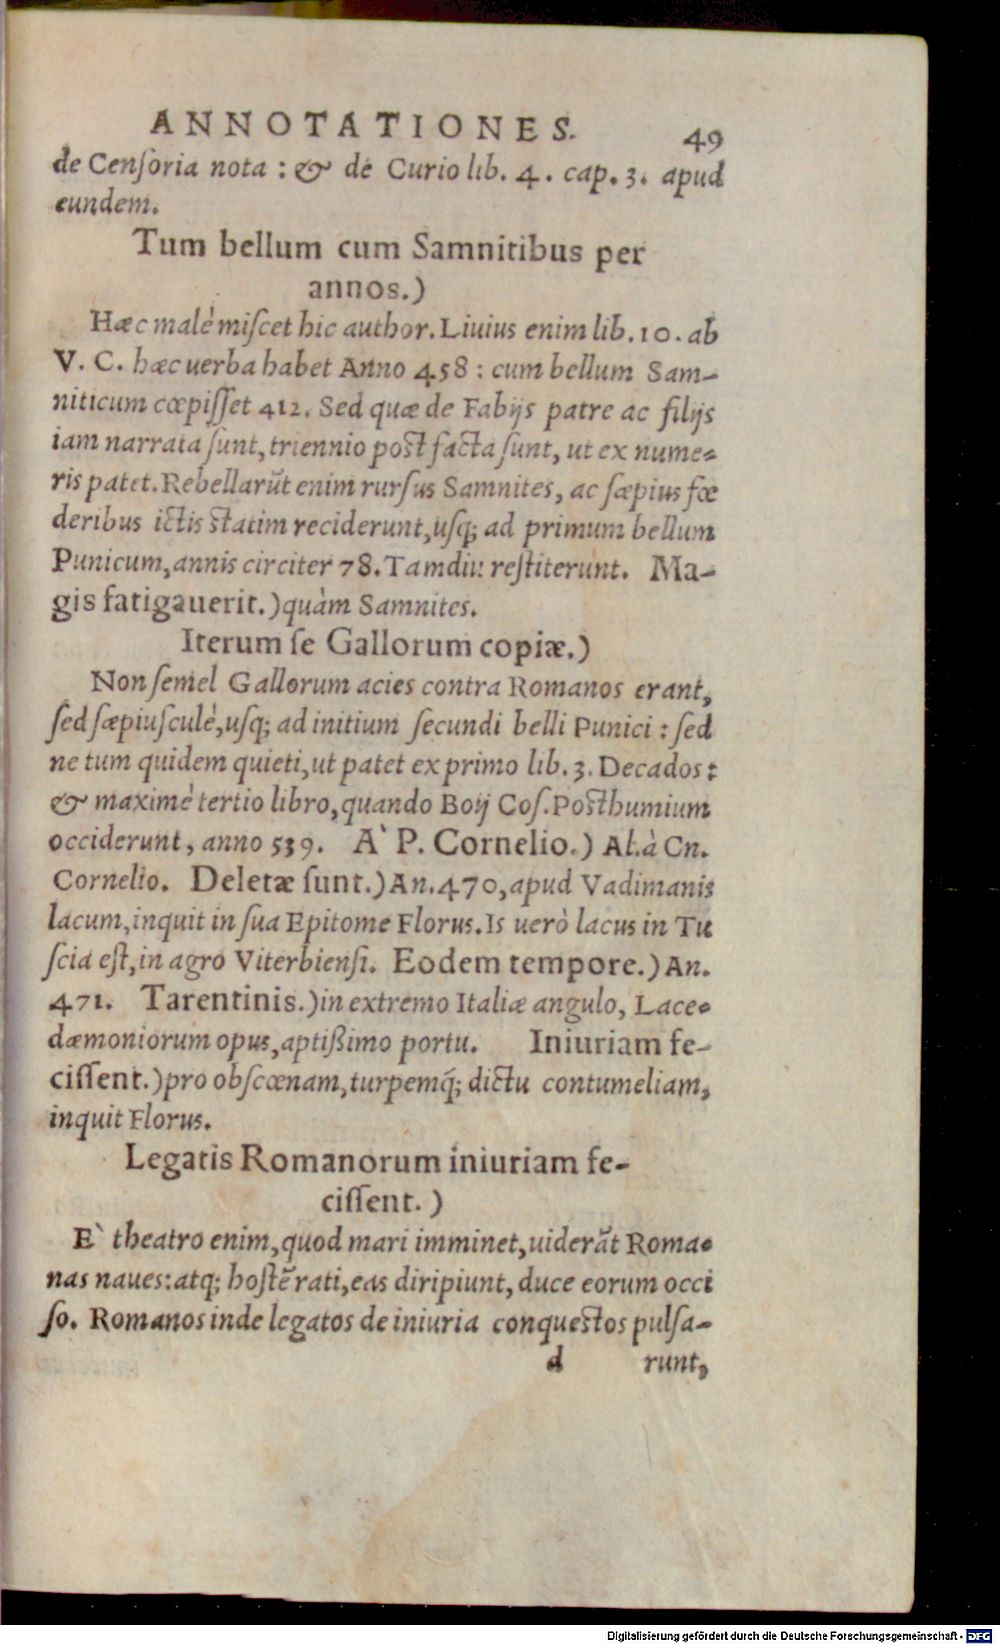 ANNOTATIONES. 49
de Cenſoria nota : & de Curio lib. 4. cap. 3. apud
eundem.
Tum bellum cum Samnitibus per
annos.)
Hæc malè miſcet hic author. Liuius enim lib. 10. ab
V. C. hæc uerba habet Anno 458 : cum bellum Sam-
niticum cœpiſſet 412. Sed quæ de Fabijs patre ac filijs
iam narrata ſunt, triennio poſt facta ſunt, ut ex nume-
ris patet. Rebellarūt enim rurſus Samnites, ac ſæpius fœ
deribus ictis ſtatim reciderunt, uſq; ad primum bellum
Punicum, annis circiter 78. Tamdiu reſtiterunt. Ma-
gis fatigauerit.) quàm Samnites.
Iterum ſe Gallorum copiæ.)
Non ſemel Gallorum acies contra Romanos erant,
ſed ſæpiuſculè, uſq; ad initium ſecundi belli Punici : ſed
ne tum quidem quieti, ut patet ex primo lib. 3. Decados :
& maximè tertio libro, quando Boij Coſ. Poſthumium
occiderunt, anno 539. A` P. Cornelio.) Al. à Cn.
Cornelio. Deletæ ſunt.) An. 470, apud Vadimanis
lacum, inquit in ſua Epitome Florus. Is uerò lacus in Tu
ſcia eſt, in agro Viterbienſi. Eodem tempore.) An.
471. Tarentinis.) in extremo Italiæ angulo, Lace-
dæmoniorum opus, aptißimo portu. Iniuriam fe-
ciſſent.) pro obſcœnam, turpemq́; dictu contumeliam,
inquit Florus.
Legatis Romanorum iniuriam fe-
ciſſent. )
E` theatro enim, quod mari imminet, uiderāt Roma-
nas naues: atq; hoſtē rati, eas diripiunt, duce eorum occi
ſo. Romanos inde legatos de iniuria conqueſtos pulſa-
d runt,
Digitalisierung gefördert durch die Deutsche Forschungsgemeinschaft - DFG